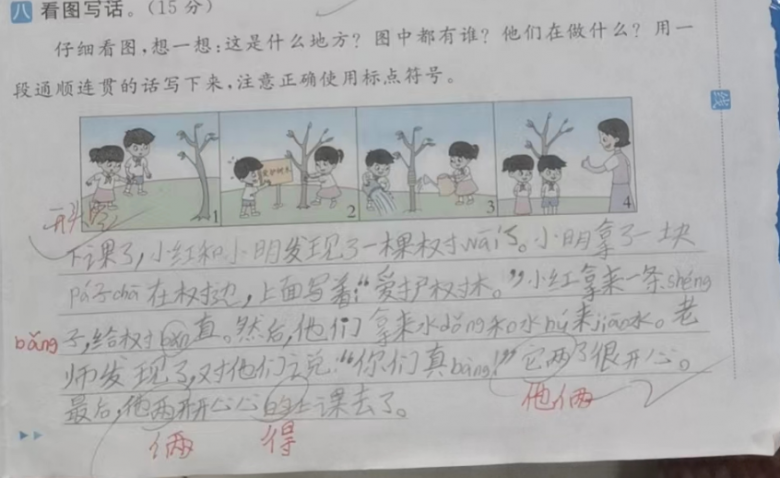 八 看图写话。(15分)
仔细看图,想一想:这是什么地方?图中都有谁?他们在做什么?用一
段通顺连贯的话写下来,注意正确使用标点符号。
爱护树木
1 2 3 4
下课了,小红和小明发现了一棵树wāi了。小明拿了一块
pái子chā在树边,上面写着:“爱护树木。”小红拿来一条shéng
子,给树bǎng直。然后,他们拿来水dǒng和水hú来jiāo水。老
bǎng
师发现了,对他们说:“你们真bàng!”它两了很开心。
他俩
最后,他两开开心心的上课去了。
俩 得